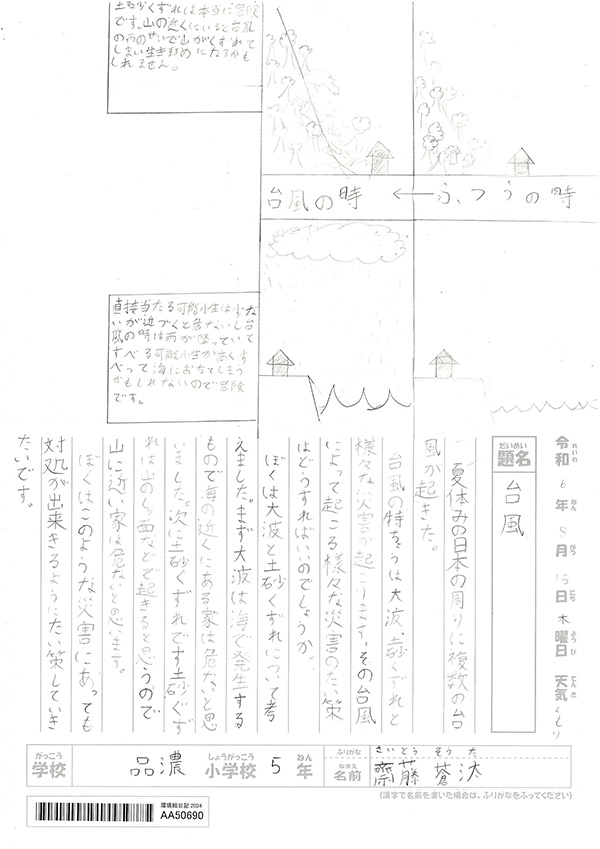 土砂くずれは本当に冒険
です。山の近くにいると台風
の雨のせいで山がくずれて
しまい生き埋めになるかも
しれません。
台風の時 ← ふつうの時
直接当たる可能小生は少ない
が近づくと危ないし台
風の時は雨が降っていて
すべる可能小生が高くす
べって海におちてしまう
かもしれないので冒険
です。
令和 6年 8月 15日 木曜日 天気 くもり
れいわ ねん がつ にち ようび てんき
だいめい
題名
台風
夏休みの日本の周りに複数の台
風が起きた。
台風の特ちょうは大波、土砂くずれと
様々な災害が起こります。その台風
によって起こる様々な災害のたい策
はどうすればいいのでしょうか。
ぼくは大波と土砂くずれについて考
えました。まず大波は海で発生する
もので海の近くにある家は危ないと思
いました。次に土砂くずれです土砂くず
れは山のしゃ面などで起きると思うので
山に近い家は危ないと思います。
ぼくはこのような災害にあっても
対処が出来きるようにたい策していき
たいです。
がっこう しょうがっこう ねん ふりがな さいとう そうた
学校 品濃 小学校 5年 なまえ 名前 齋藤 蒼汰
(漢字で名前を書いた場合は、ふりがなをふってください)
環境絵日記 2024
AA50690